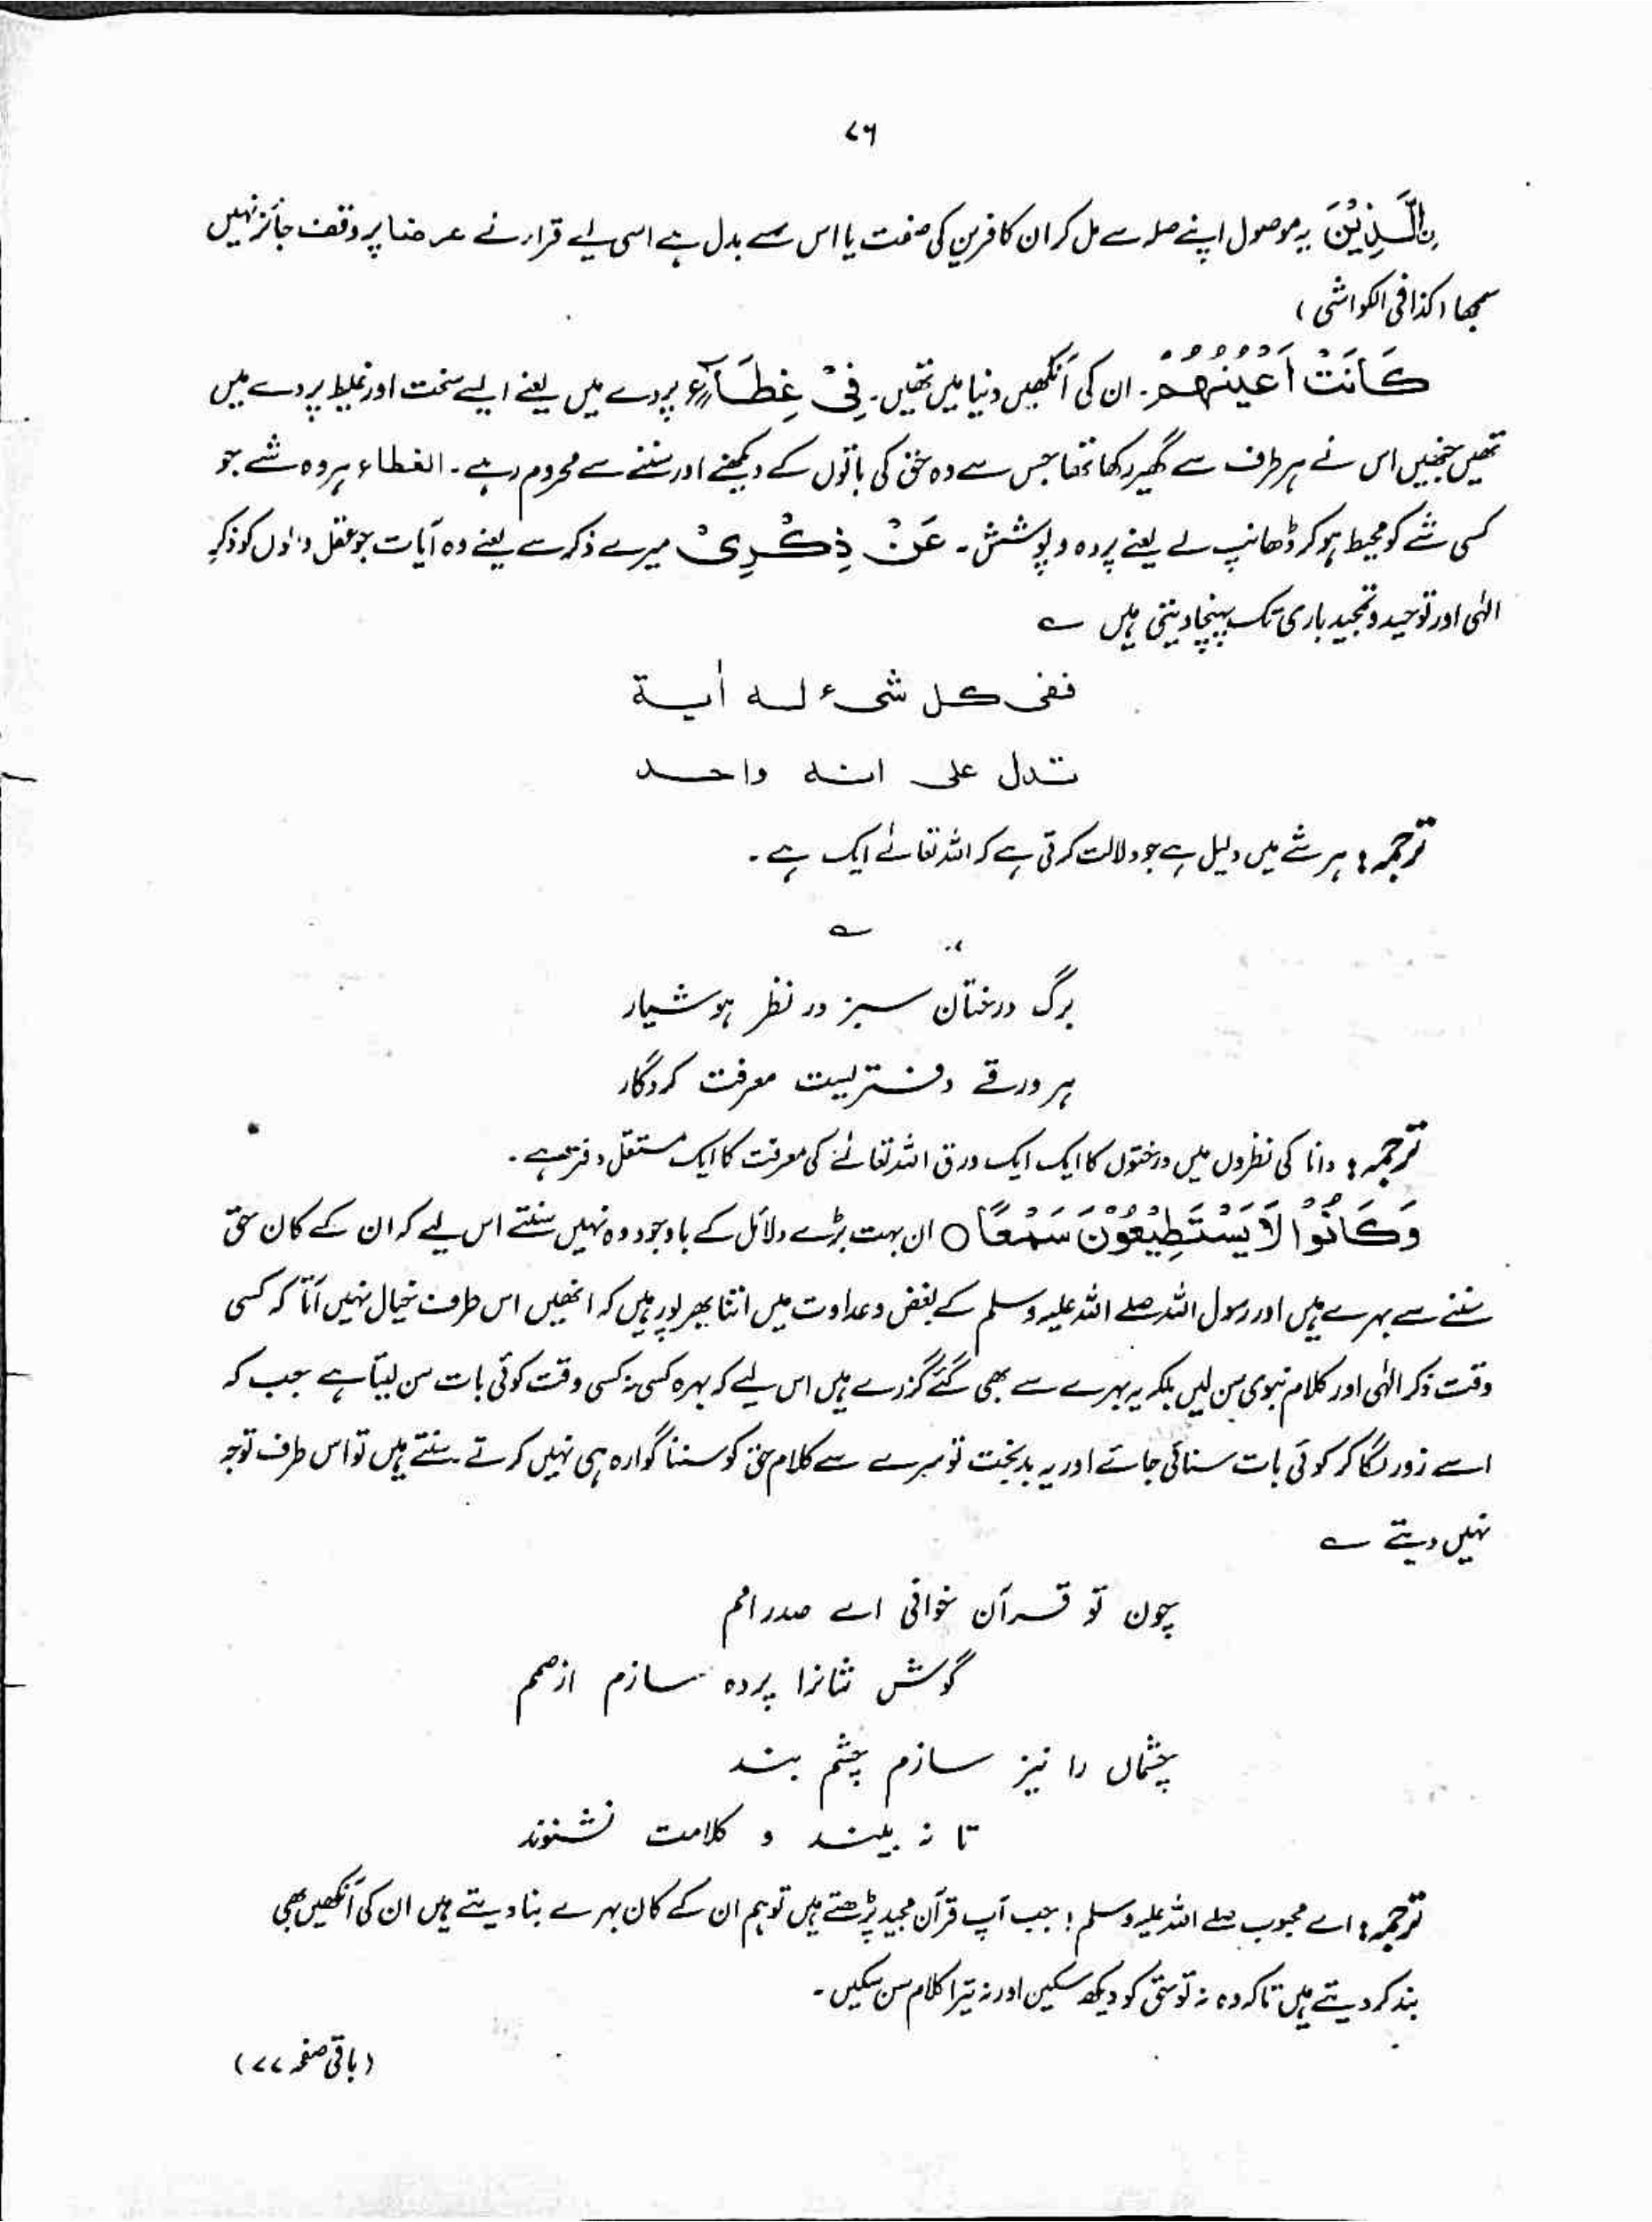 ۷۶
نِالَّذِیْنَ یہ موصول اپنے صلہ سے مل کر ان کافرین کی صفت یا اس سے بدل ہے اسی لیے قراء نے عرضا پر وقف جائز نہیں
سمجھا (کذا فی الکواشی)
كَانَتْ اَعْيُنُهُمْ ۔ ان کی آنکھیں دنیا میں تھیں۔ فِیْ غِطَآءٍ پردے میں یعنے ایسے سخت اور غلیظ پردے میں
تھیں جنھیں اس نے ہر طرف سے گھیر رکھا تھا جس سے وہ حق کی باتوں کے دیکھنے اور سننے سے محروم رہے ۔ الغطاء ہر وہ شے جو
کسی شے کو محیط ہو کر ڈھانپ لے یعنے پردہ و پوشش ۔ عَنْ ذِكْرِیْ میرے ذکر سے یعنے وہ آیات جو عقل والوں کو ذکر
الٰہی اور توحید و تمجید باری تک پہنچا دیتی ہیں ؎
ففی کل شیء لہ اٰیۃ
تدل علی انہ واحد
ترجمہ: ہر شے میں دلیل ہے جو دلالت کرتی ہے کہ اللہ تعالےٰ ایک ہے ۔
؎
برگ درختان سبز در نظر ہوشیار
ہر ورقے دفتریست معرفت کردگار
ترجمہ: دانا کی نظروں میں درختوں کا ایک ایک ورق اللہ تعالےٰ کی معرفت کا ایک مستقل دفتر ہے ۔
وَكَانُوْا لَا يَسْتَطِيْعُوْنَ سَمْعًا ○ ان بہت بڑے دلائل کے باوجود وہ نہیں سنتے اس لیے کہ ان کے کان حق
سننے سے بہرے ہیں اور رسول اللہ صلے اللہ علیہ وسلم کے بغض و عداوت میں اتنا بھرپور ہیں کہ انھیں اس طرف خیال نہیں آتا کہ کسی
وقت ذکر الٰہی اور کلام نبوی سن لیں بلکہ یہ بہرے سے بھی گئے گزرے ہیں اس لیے کہ بہرہ کسی نہ کسی وقت کوئی بات سن لیتا ہے جب کہ
اسے زور لگا کر کوئی بات سنائی جائے اور یہ بدبخت تو سرے سے کلام حق کو سننا گوارہ ہی نہیں کرتے ۔ سنتے ہیں تو اس طرف توجہ
نہیں دیتے ؎
چون تو قرآن خوانی اے صدر امم
گوش شانرا پردہ سازم از صمم
چشماں را نیز سازم چشم بند
تا نہ بیند و کلامت نشنوند
ترجمہ: اے محبوب صلے اللہ علیہ وسلم! جب آپ قرآن مجید پڑھتے ہیں تو ہم ان کے کان بہرے بنا دیتے ہیں ان کی آنکھیں بھی
بند کر دیتے ہیں تاکہ وہ نہ تو حق کو دیکھ سکیں اور نہ تیرا کلام سن سکیں ۔
(باقی صفحہ ۷۷)